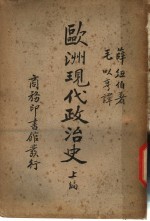 薛紐伯著
毛以亨譯
歐洲現代政治史 上編
商務印書館發行